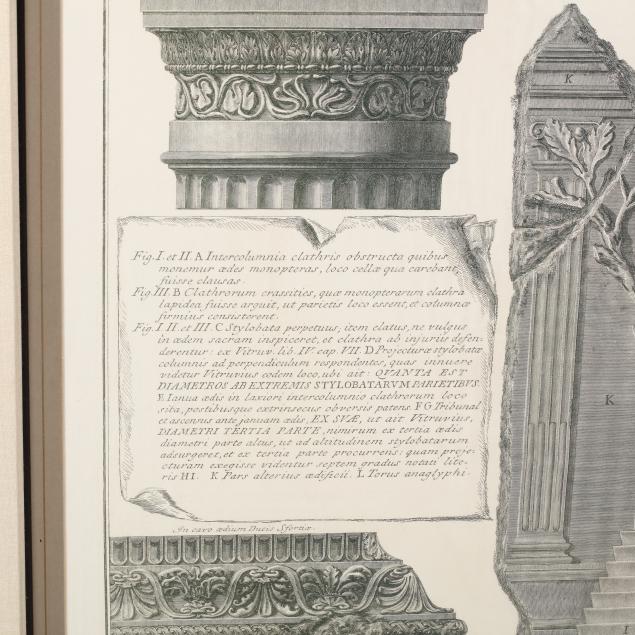 K
Fig. I. et II. A Intercolumnia clathris obstructa quibus
monemur ædes monopteras, loco cellæ qua carebant,
fuisse clausas.
Fig. III. B Clathrorum crassities, quæ monopterarum clathra
lapidea fuisse arguit, ut parietis loco essent, et columnæ
firmius consisterent.
Fig. I. II. et III. C Stylobata perpetuus, item elatus, ne vulgus
in ædem sacram inspiceret, et clathra ab injuriis defen-
derentur: ex Vitruv. lib. IV. cap. VII. D Projecturæ stylobatæ
columnis ad perpendiculum respondentes, quas innuere
videtur Vitruvius eodem loco, ubi ait: QVANTA EST
DIAMETROS AB EXTREMIS STYLOBATARVM PARIETIBVS.
E Ianua ædis in laxiori intercolumnio clathrorum loco
sita, postibusque extrinsecus obversis patens F G Tribunal
et ascensus ante januam ædis, EX SVÆ, ut ait Vitruvius,
DIAMETRI TERTIA PARTE, nimirum ex tertia ædis
diametri parte altus, ut ad altitudinem stylobatarum
adsurgeret, et ex tertia parte procurrens: quam proje-
cturam exegisse videntur septem gradus notati lite-
ris H I. K Pars alterius ædificii. L Torus anaglyphi-
K
In cavo ædium Ducis Sfortiæ.